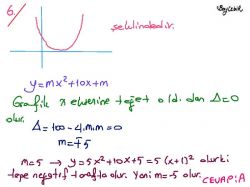 6.
şeklindedir.
y=mx²+10x+m
Grafik x eksenine teğet oldu. dan Δ=0
olur.
Δ = 100-4.m.m=0
m=∓5
m=5 → y=5x²+10x+5=5(x+1)² olur ki
tepe negatif tarafta olur. Yani m=-5 olur.
CEVAP:A